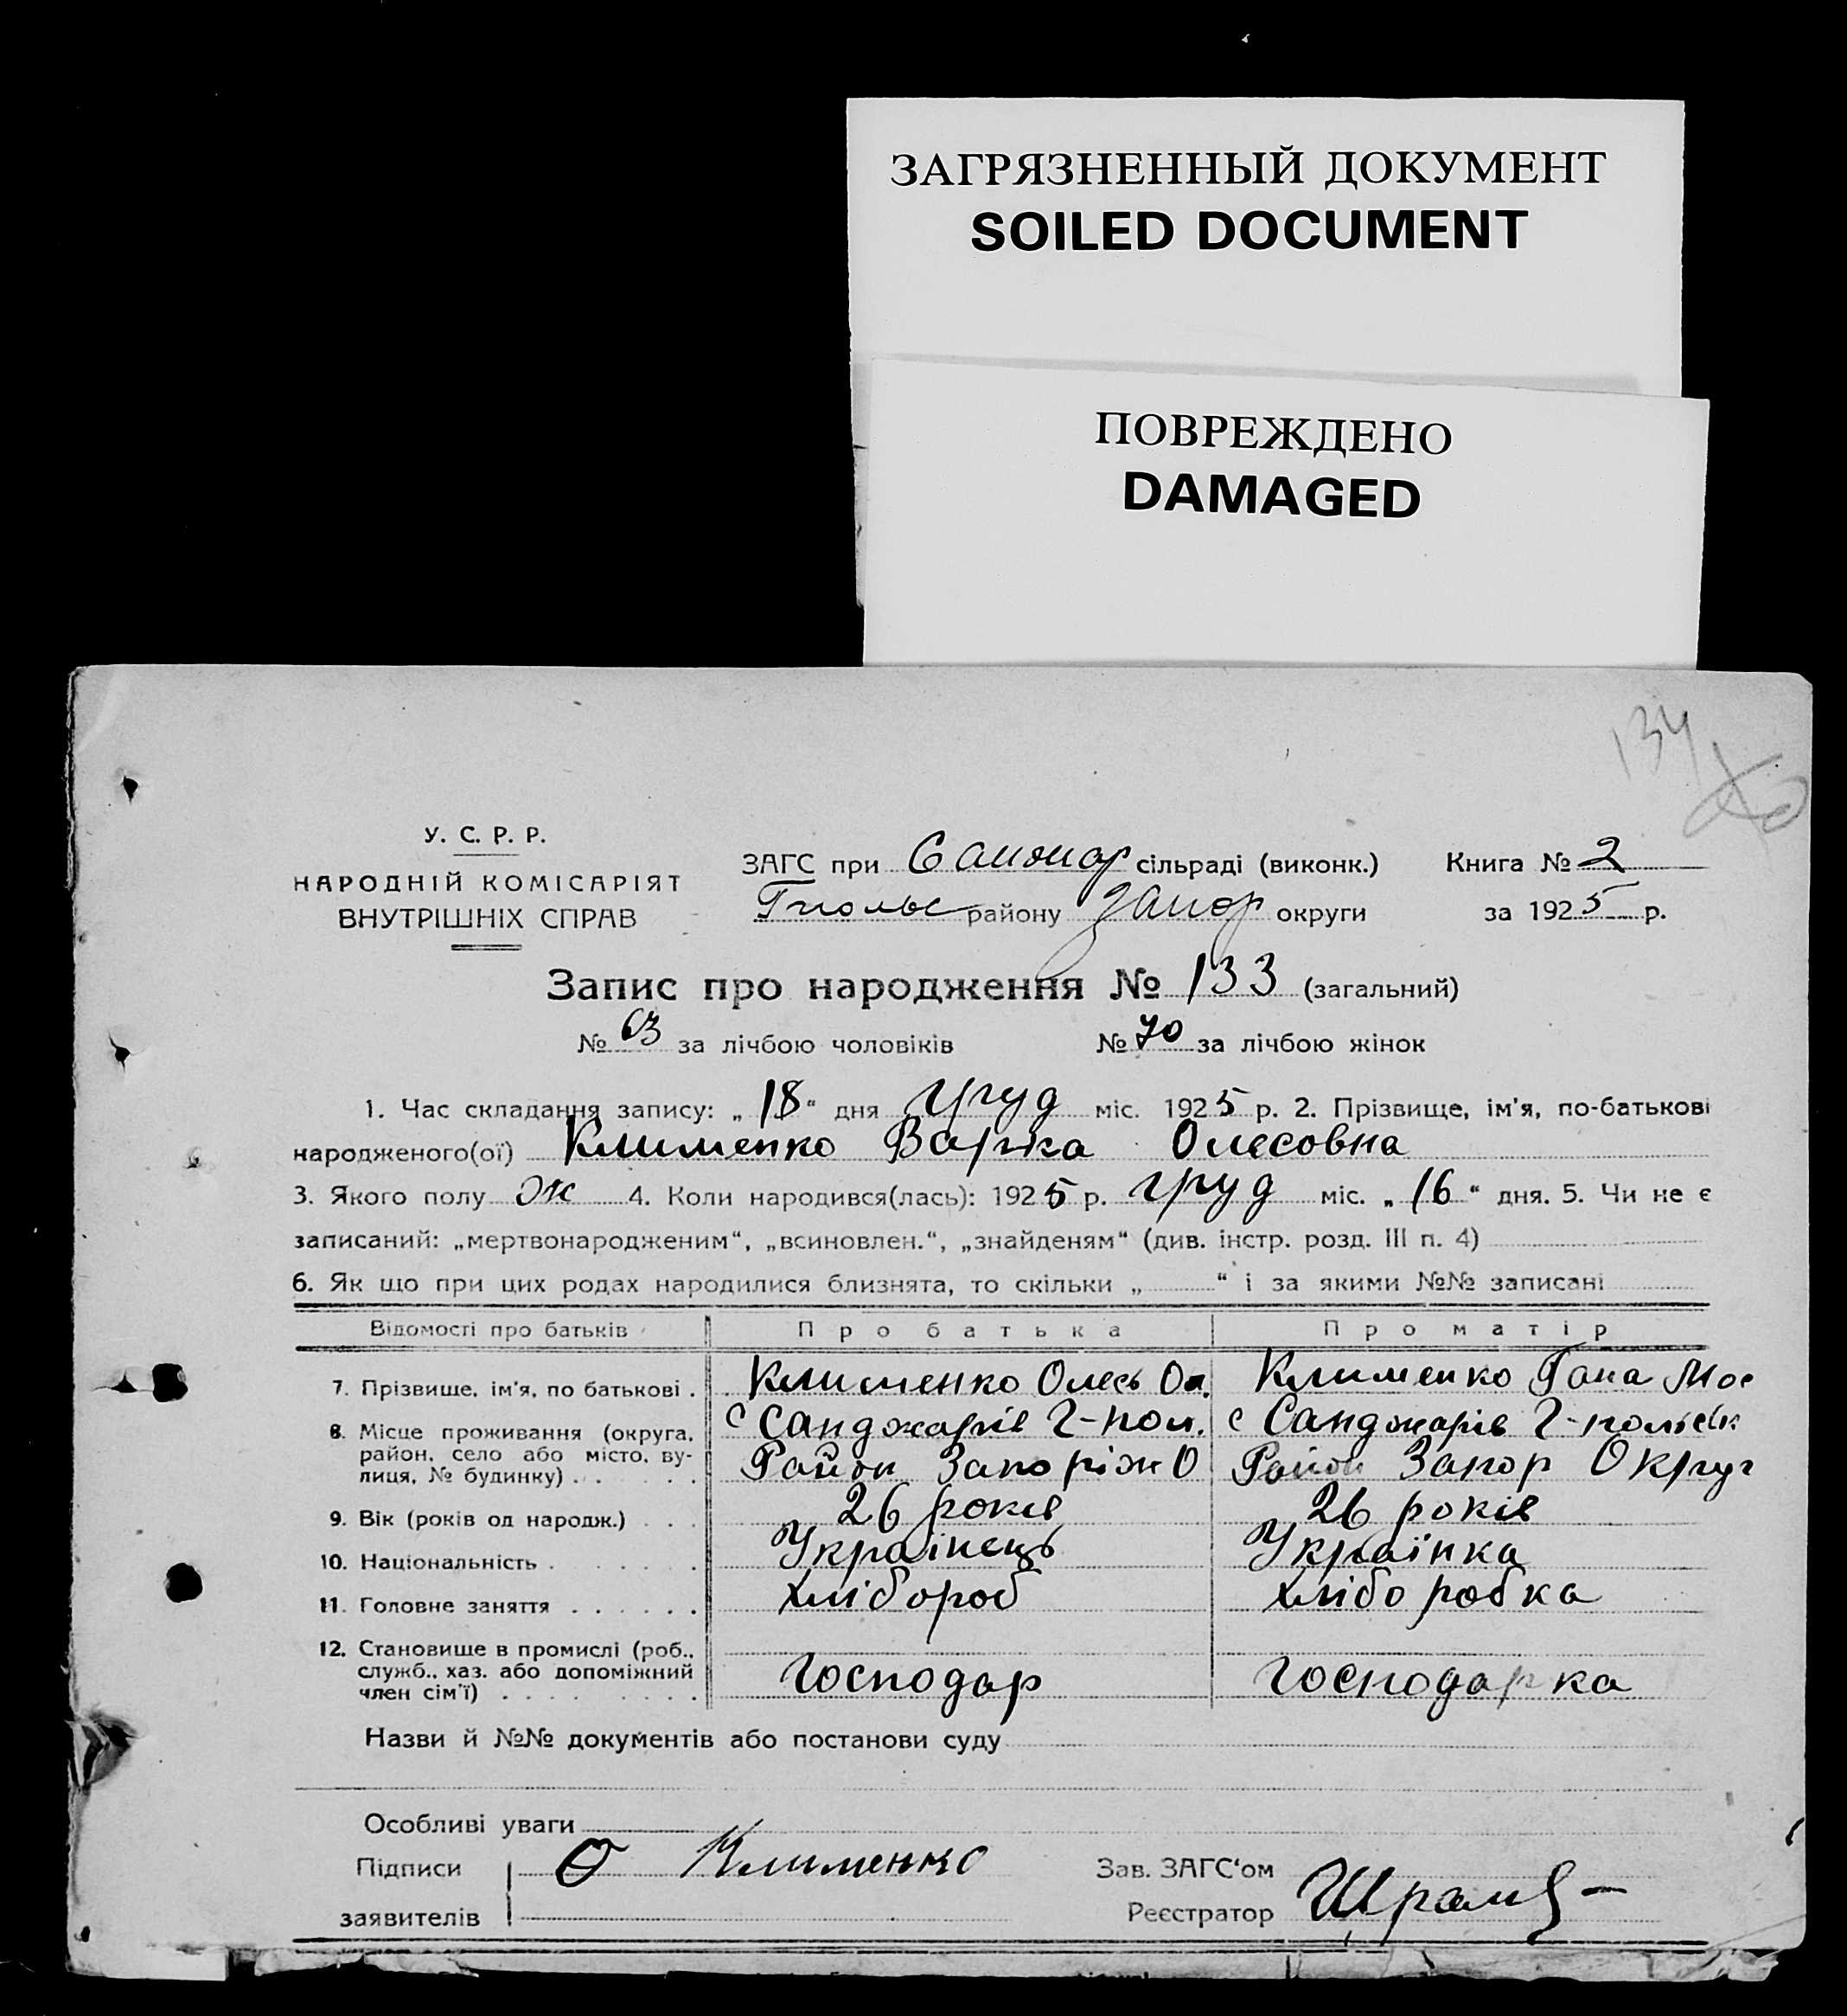 ЗАГРЯЗНЕННЫЙ ДОКУМЕНТ
SOILED DOCUMENT
ПОВРЕЖДЕНО
DAMAGED
134
У. С. Р. Р.
НАРОДНІЙ КОМІСАРІЯТ
ВНУТРІШНІХ СПРАВ
ЗАГС при сільраді (виконк.) Книга № 2
району Запор округи за 1925 р.
Запис про народження № 133 (загальний)
№ 63 за лічбою чоловіків № 70 за лічбою жінок
1. Час складання запису: „18“ дня груд міс. 1925 р. 2. Прізвище, ім'я, по-батькові
народженого(ої) Клименко Варка Олесовна
3. Якого полу Ж 4. Коли народився(лась): 1925 р. груд міс. „16“ дня. 5. Чи не є
записаний: „мертвонародженим“, „всиновлен.“, „знайденям“ (див. інстр. розд. III п. 4)
6. Як що при цих родах народилися близнята, то скільки „ “ і за якими №№ записані
Відомості про батьків Про батька Про матір
7. Прізвише, ім'я, по батькові . Клименко Олесь Ол. Клименко Гана Мос
8. Місце проживання (округа, район, село або місто, вулиця, № будинку) . . . с Санджарів Г-пол. Район Запоріж О с Санджарів Г-польськ Район Запор Округ
9. Вік (років од народж.) . . . 26 років 26 років
10. Національність . . . . . Українець Українка
11. Головне заняття . . . . . . хлібороб хліборобка
12. Становише в промислі (роб., служб., хаз. або допоміжний член сім'ї) . . . . . . . . . господар господарка
Назви й №№ документів або постанови суду
Особливі уваги
Підписи О Клименко Зав. ЗАГС‘ом
заявителів Реєстратор